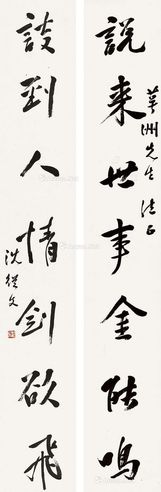 說来世事金能鸣
華洲先生法正
談到人情劍欲飛
沈從文